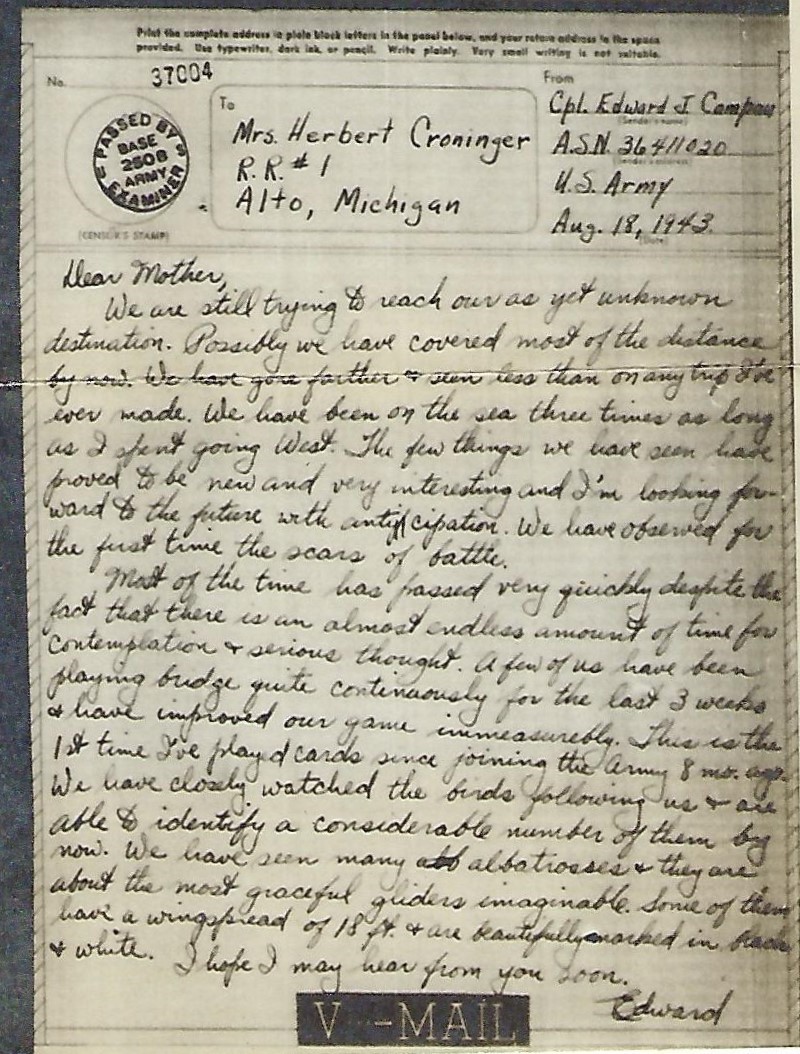 Print the complete address in plain block letters in the panel below, and your return address in the space
provided. Use typewriter, dark ink, or pencil. Write plainly. Very small writing is not suitable.
No.
37004
PASSED BY
BASE
2508
ARMY
EXAMINER
(CENSOR'S STAMP)
To
Mrs. Herbert Croninger
R.R. #1
Alto, Michigan
From
Cpl. Edward J. Campau
(Sender's name)
A.S.N. 36411020
(Sender's address)
U.S. Army
Aug. 18, 1943
(Date)
Dear Mother,
We are still trying to reach our as yet unknown
destination. Possibly we have covered most of the distance
by now. We have gone farther & seen less than on any trip I've
ever made. We have been on the sea three times as long
as I spent going West. The few things we have seen have
proved to be new and very interesting and I'm looking for-
ward to the future with anticipation. We have observed for
the first time the scars of battle.
Most of the time has passed very quickly despite the
fact that there is an almost endless amount of time for
contemplation & serious thought. A few of us have been
playing bridge quite continuously for the last 3 weeks
& have improved our game immeasurebly. This is the
1st time I've played cards since joining the Army 8 mo. ago.
We have closely watched the birds following us & are
able to identify a considerable number of them by
now. We have seen many albatrosses & they are
about the most graceful gliders imaginable. Some of them
have a wingspread of 18 ft. & are beautifully marked in black
& white. I hope I may hear from you soon.
Edward
V - MAIL